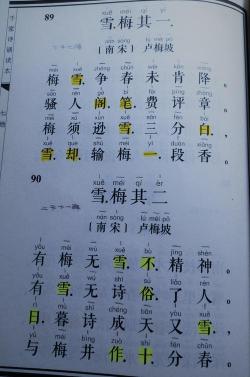 千家诗诵读本
七绝
89
xuě méi qí yī
雪梅其一
nán sòng lú méi pō
〔南宋〕卢梅坡
méi xuě zhēng chūn wèi kěn xiáng
梅雪争春未肯降，
sāo rén gē bǐ fèi píng zhāng
骚人阁笔费评章。
méi xū xùn xuě sān fēn bái
梅须逊雪三分白，
xuě què shū méi yī duàn xiāng
雪却输梅一段香。
90
xuě méi qí èr
雪梅其二
nán sòng lú méi pō
〔南宋〕卢梅坡
yǒu méi wú xuě bù jīng shén
有梅无雪不精神，
yǒu xuě wú shī sú liǎo rén
有雪无诗俗了人。
rì mù shī chéng tiān yòu xuě
日暮诗成天又雪，
yǔ méi bìng zuò shí fēn chūn
与梅并作十分春。